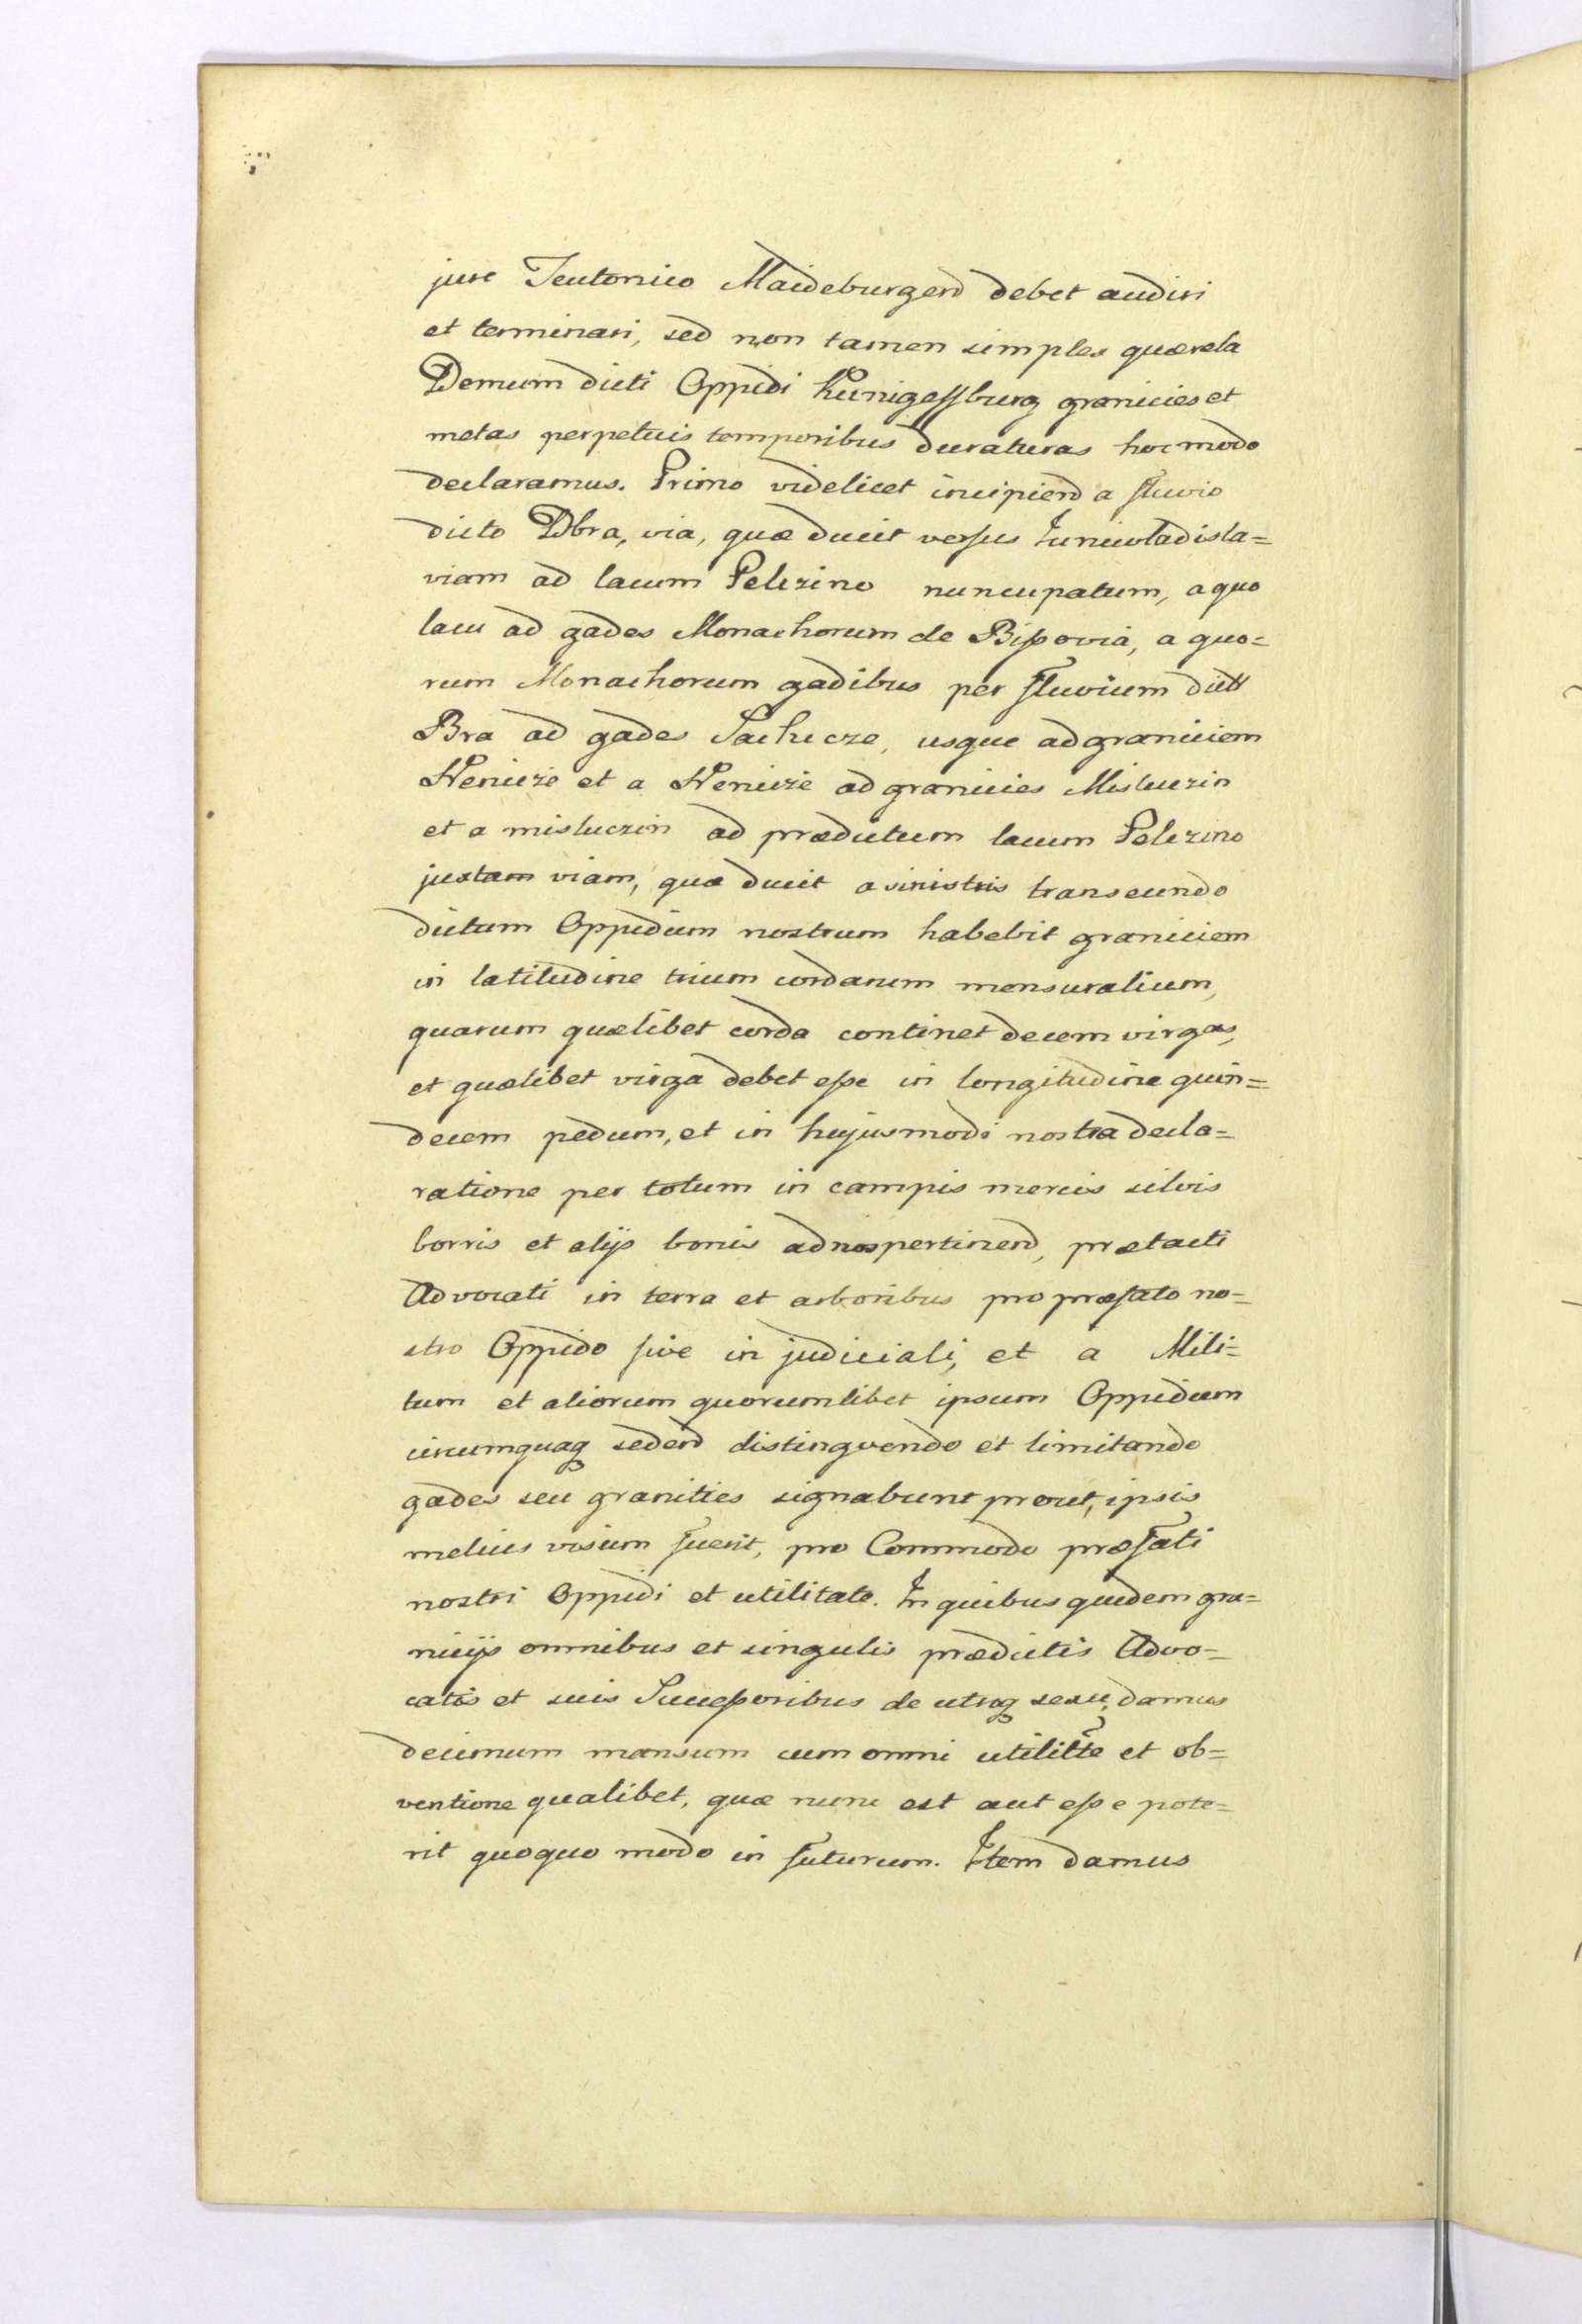 jure Teutonico Maideburgend debet audiri
et terminari, sed non tamen simplex quærela
Demum dicti Oppidi Kunigessburg granicies et
metas perpetuis temporibus duraturas hoc modo
declaramus. Primo videlicet incipiend a fluvio
dicto Dbra, via, quæ ducit versus Juniwladisla=
viam ad lacum Pelczino nuncupatum, a quo
lacu ad gades Monachorum de Bissovia, a quo=
rum Monachorum gadibus per fluvium dict
Bra ad gades Sachicze, usque ad graniciem
Nenicze et a Nenicze ad granicies Misluczin
et a misluczin ad prædictum lacum Pelczino
juxtam viam, quæ ducit a sinistris transeundo
dictum Oppidum nostrum habebit graniciem
in latitudine trium cordarum mensuralium,
quarum quælibet corda continet decem virgas,
et quælibet virga debet esse in longitudine quin=
decem pedum, et in hujusmodi nostra decla=
ratione per totum in campis mericis silvis
borris et alijs bonis ad nos pertinend, prætacti
Advocati in terra et arboribus pro præfato no=
stro Oppido sive in judiciali, et a Mili=
tum et aliorum quorumlibet ipsum Oppidum
circumquaq sedend distingvendo et limitando
gades seu granities signabunt prout, ipsis
melius visum fuerit, pro Commodo præfati
nostri Oppidi et utilitate. In quibus quidem gra=
nicijs omnibus et singulis prædictis Advo=
catis et suis Successoribus de utroq sexu, damus
decimum mansum cum omni utilitte et ob=
ventione qualibet, quæ nunc est aut esse pote=
rit quoquo modo in futurum. Item damus